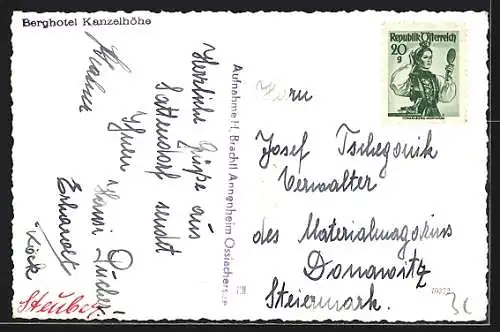 Berghotel Kanzelhöhe
Herzliche Grüße aus
Sattendorf sendet
Ihnen Hansi
Erhardt
Köck
Steuber
Aufnahme H. Brachtl Annenheim Ossiachersee
Republik Österreich
20
g
Herrn
Josef Tschegonik
Verwalter
des Materialmagazins
Donawitz
Steiermark.